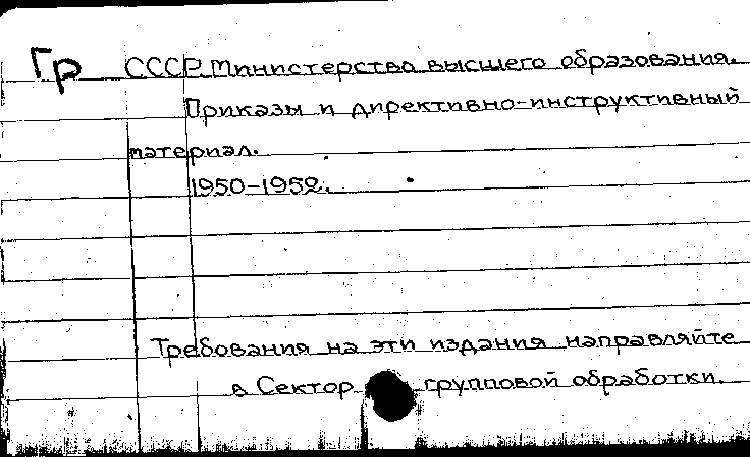 Гр СССР. Министерство высшего образования.
Приказы и директивно-инструктивный
материал.
1950-1952.
Требования на эти издания направляйте
в Сектор групповой обработки.